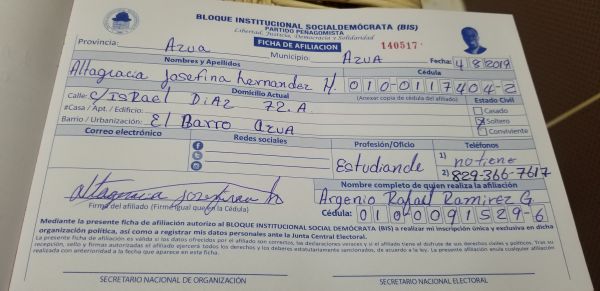 BLOQUE INSTITUCIONAL SOCIALDEMÓCRATA (BIS)
PARTIDO PEÑAGOMISTA
Libertad, Justicia, Democracia y Solidaridad
FICHA DE AFILIACION 140517
Provincia: Azua Municipio: AZUA Fecha: 4/8/2019
Nombres y Apellidos Cédula
Altagracia Josefina hernandez H. 010-0117404-2
Domicilio Actual (Anexar copia de cédula del afiliado) Estado Civil
Calle: C/ISRael DiAZ 72.A Casado
#Casa / Apt. / Edificio: Soltero
Barrio / Urbanización: El Barro AZUA Conviviente
Correo electrónico Redes sociales Profesión/Oficio Teléfonos
Estudiande 1) no tiene
2) 829-366-7617
Nombre completo de quien realiza la afiliación
altagracia Argenio Rafael Ramirez G
Firma del afiliado (Firma igual que en la Cédula) Cédula: 010 0091529-6
Mediante la presente ficha de afiliación autorizo al BLOQUE INSTITUCIONAL SOCIAL DEMÓCRATA (BIS) a realizar mi inscripción única y exclusiva en dicha
organización política, así como a registrar mis datos personales ante la Junta Central Electoral.
La presente ficha de afiliación es válida si los datos ofrecidos por el afiliado son correctos, las declaraciones veraces y si el afiliado tiene el disfrute de sus derechos civiles y políticos. Tras su
recepción, sello y firmas autorizadas el afiliado ejercerá todos los derechos y los deberes estatutariamente sancionados, de acuerdo a la ley. La presente afiliación anula cualquier afiliación
realizada con anterioridad a la fecha que aparece en esta ficha.
SECRETARIO NACIONAL DE ORGANIZACIÓN SECRETARIO NACIONAL ELECTORAL